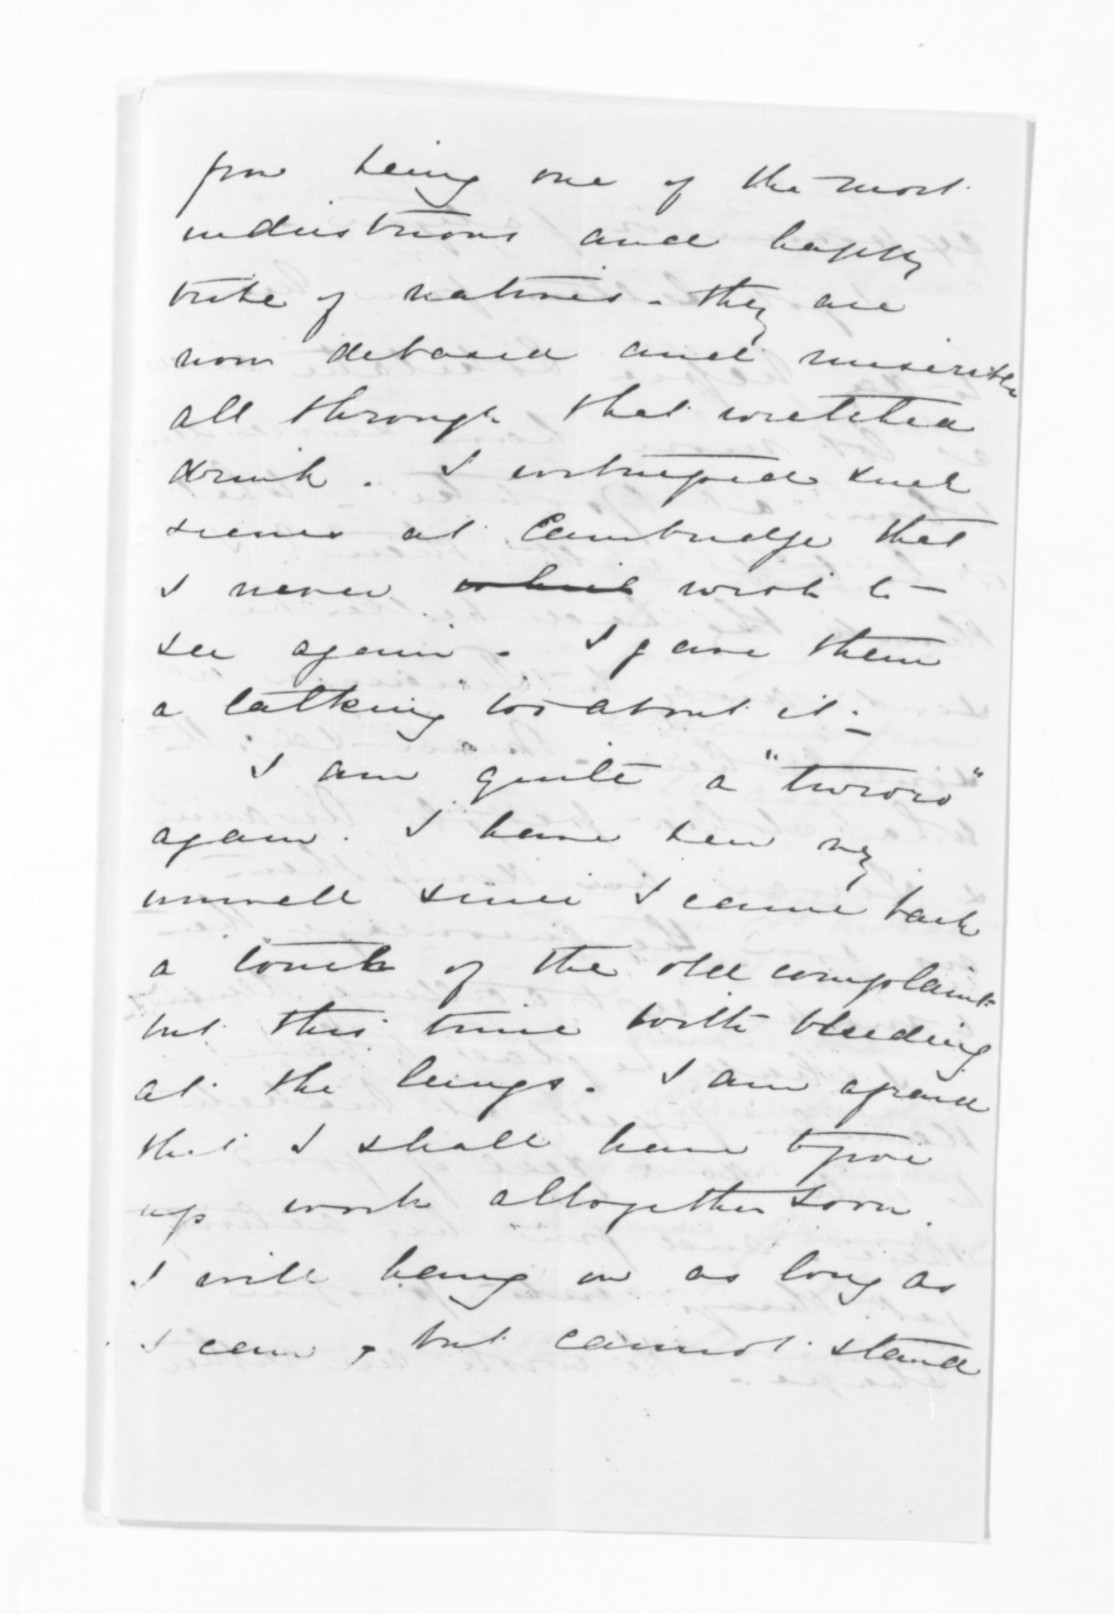 from being one of the most
industrious and happy
tribe of natives - they are
now debased and miserable
all through that wretched
drink. I witnessed such
scenes at Cambridge that
I never wish to
see again. I gave them
a talking too about it -
I am quite a "turoro"
again. I have been very
unwell since I came back
a touch of the old complaint
but this time with bleeding
at the lungs. I am afraid
that I shall have to give
up work altogether soon.
I will hang on as long as
I can, but cannot stand